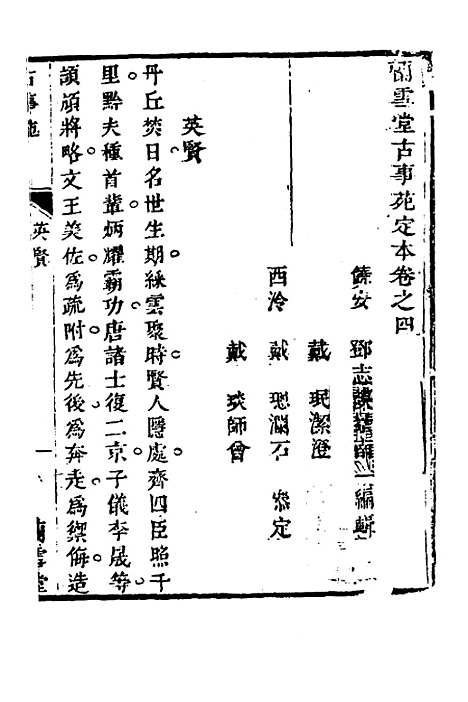 蘭雪堂古事苑定本卷之四
饒安 鄧志謨 編輯
戴 珉潔澄
西泠 戴 璁瀾石 叅定
戴 琰師曾
英賢
丹丘焚日名世生期綵雲聚時賢人隱處齊四臣照千
里黔夫種首輩炳耀霸功唐諸士復二京子儀李晟等
頡頏將略文王美佐為疏附為先後為奔走為禦侮造
古事苑 英賢 一 蘭雪堂